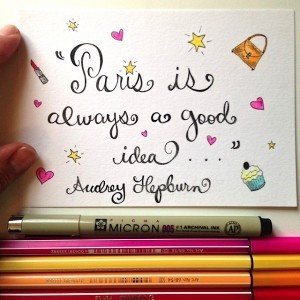 "Paris is
always a good
idea . . . ."
Audrey Hepburn
PIGMA
MICRON 005 #1 ARCHIVAL INK AP